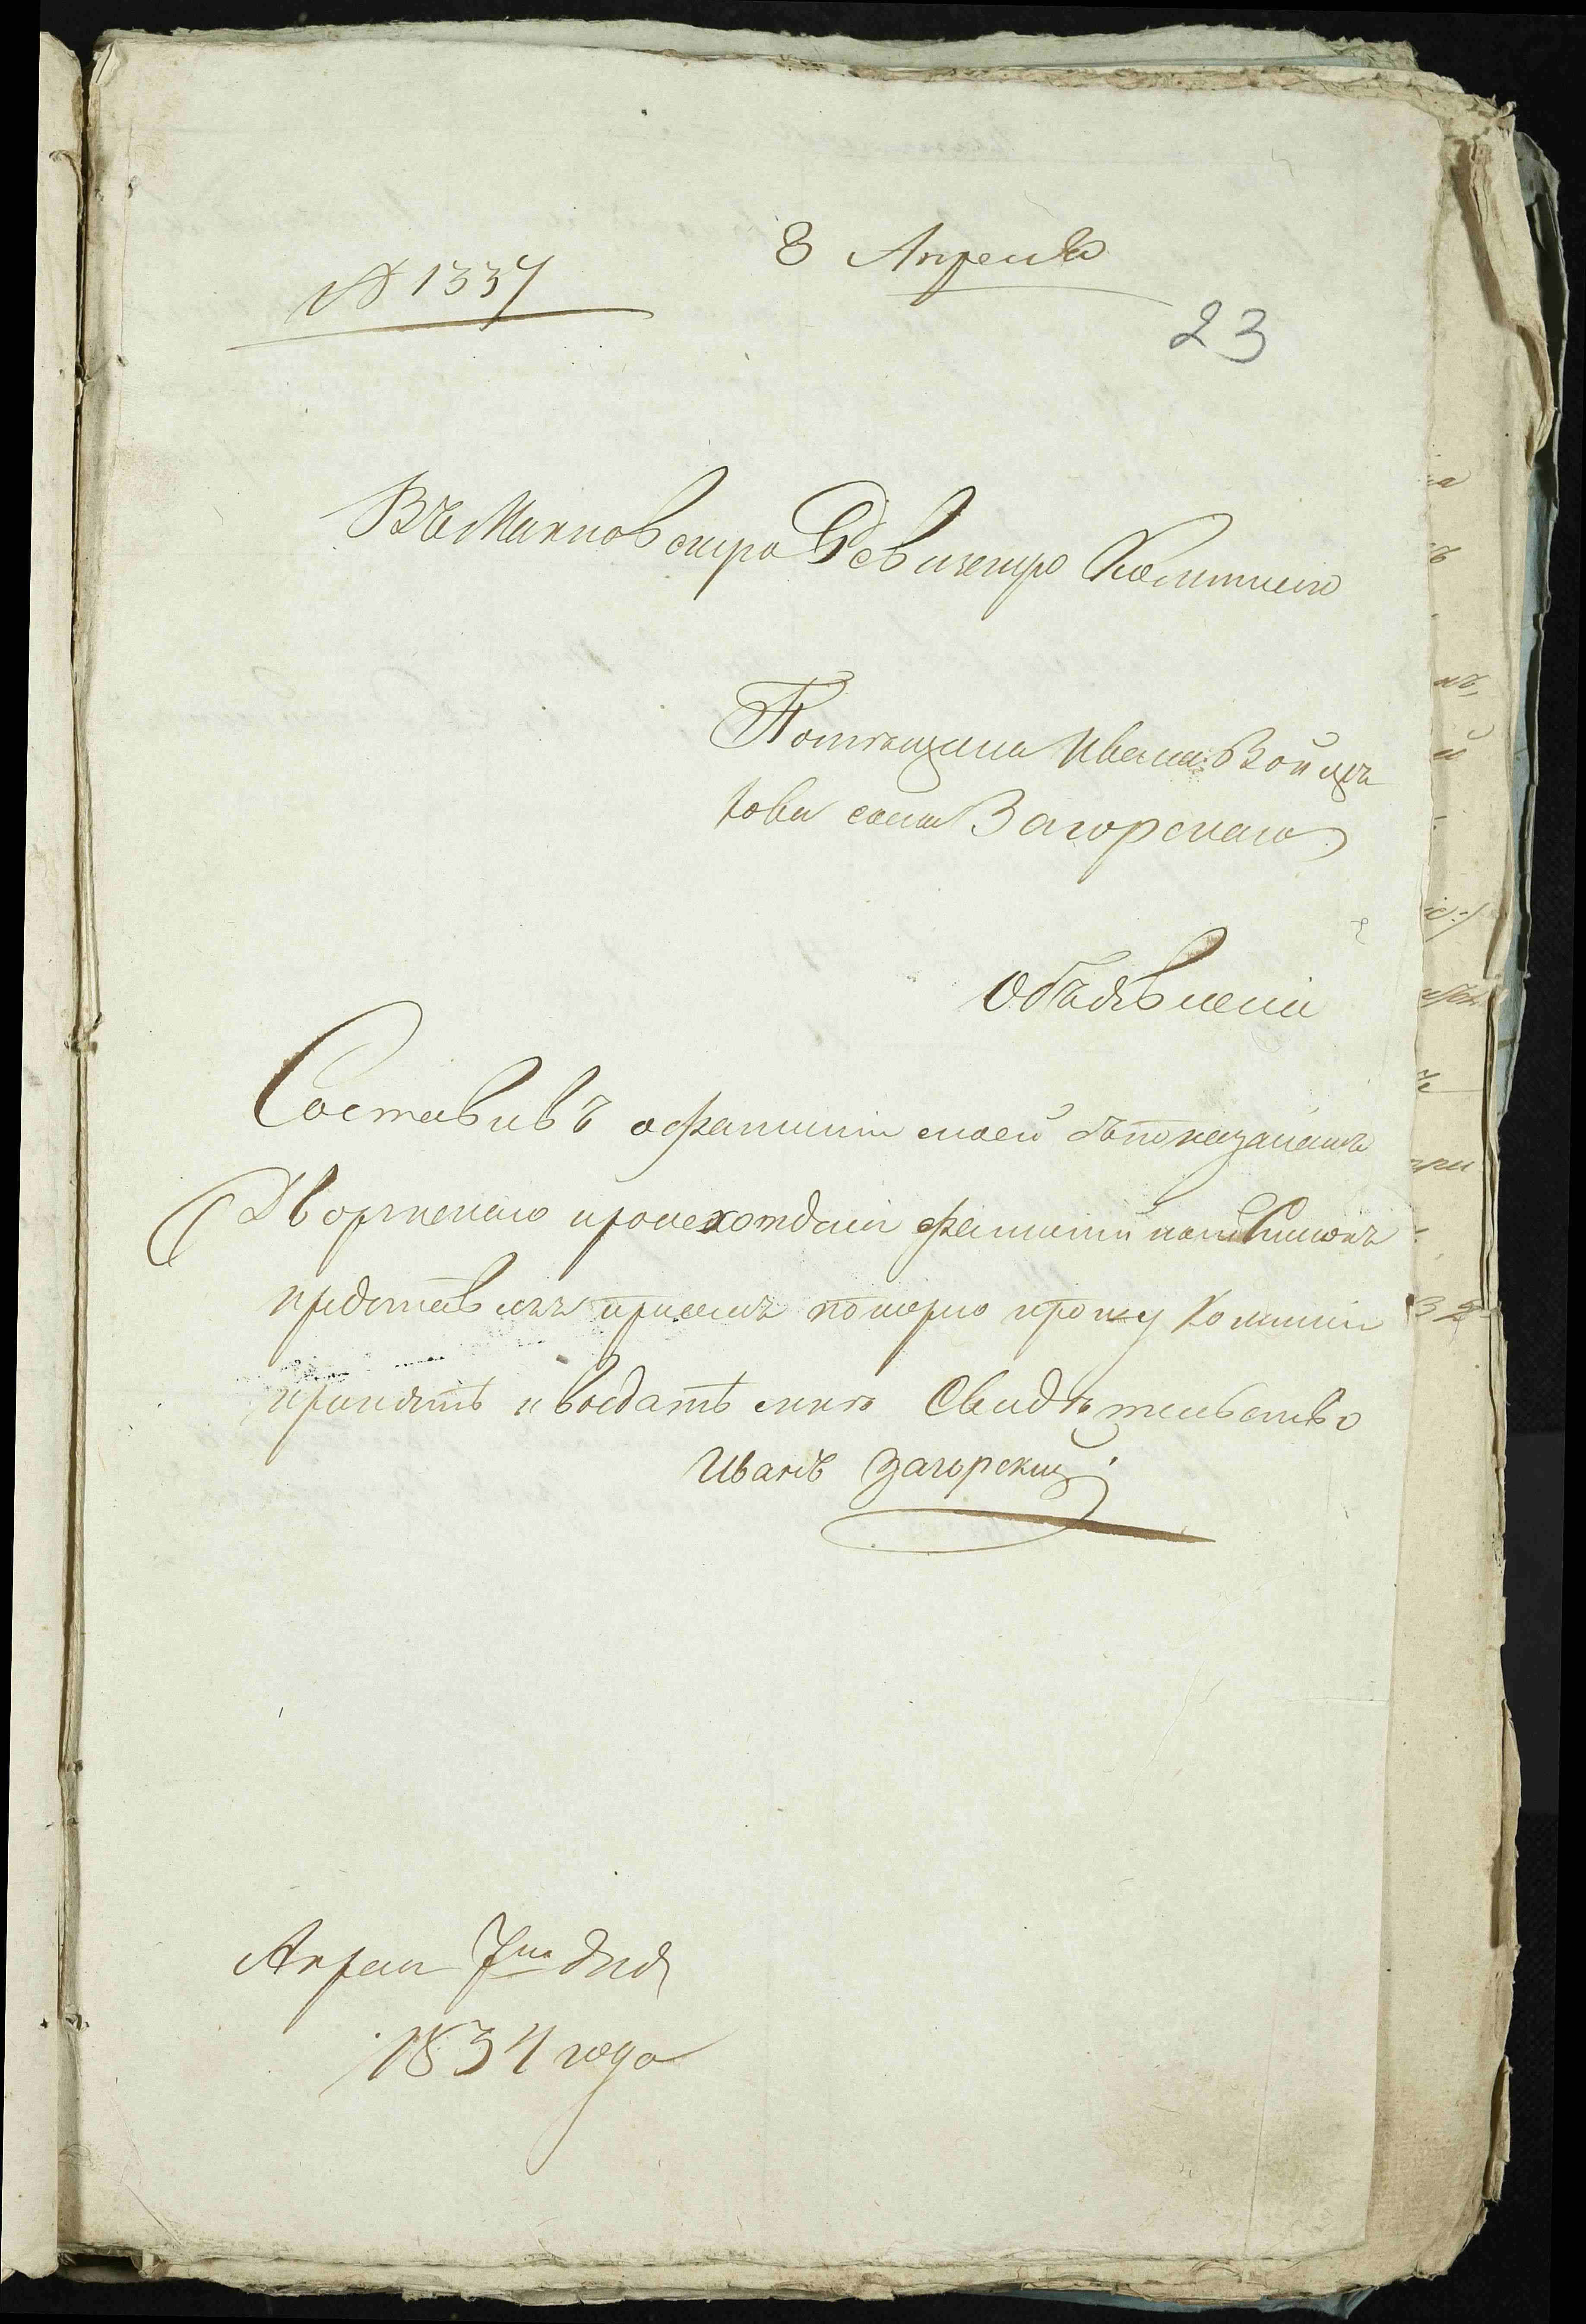 № 1337
8 Апреля
23
Въ Минскую Ревизскую Комиссию
Помѣщика Ивана Войцѣ
хова сына Загорскаго
Объявленіе
Составивъ о фамиліи моей съ показаніемъ
Дворянскаго происхожденія фамиліи
представляя при семъ прошу Комиссію
принять и выдать мнѣ Свидѣтельство
Иванъ Загорскій
Апрѣля 7го дня
1834 года